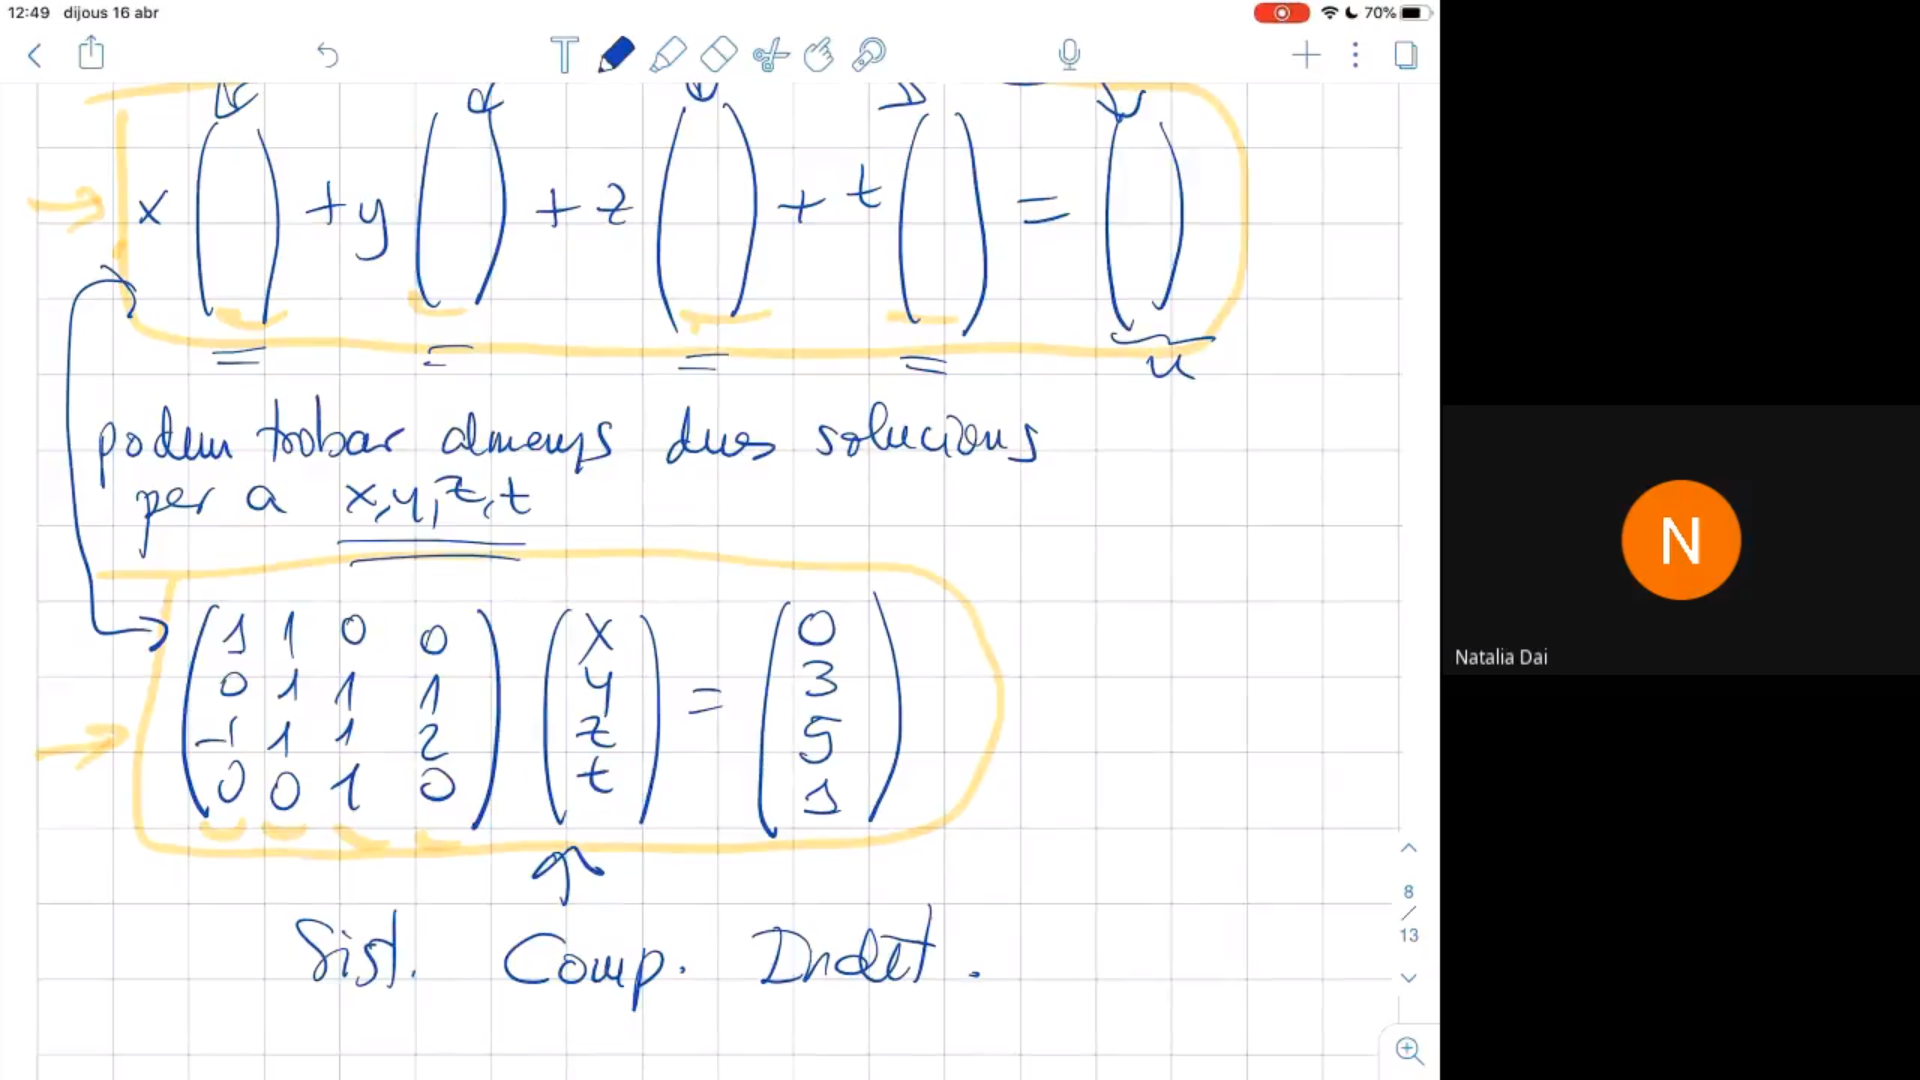 12:49 dijous 16 abr 70%
x ( ) + y ( ) + z ( ) + t ( ) = ( )
u
podem trobar almenys dues solucions
per a x, y, z, t
1 1 0 0 x 0
0 1 1 1 y 3
-1 1 1 2 z = 5
0 0 1 0 t 1
Sist. Comp. Indet.
8
/
13
N
Natalia Dai